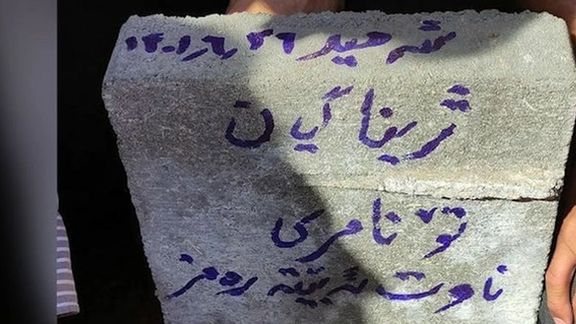 شەهید ۱۴۰۱/۶/۲۶
ژینا گیان
تۆ نامری
ناوت ئەبێتە رەمز